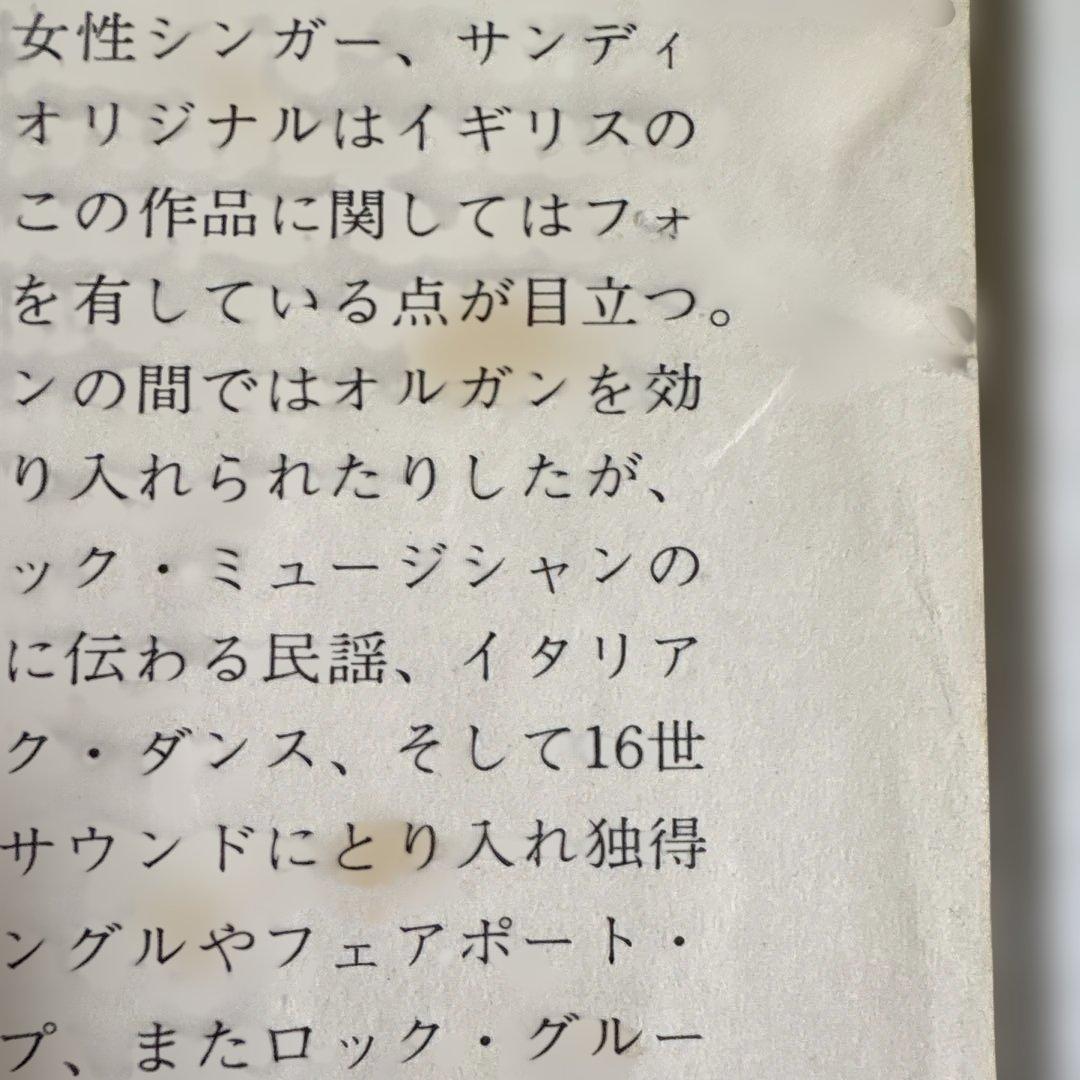 女性シンガー、サンディ
オリジナルはイギリスの
この作品に関してはフォ
を有している点が目立つ。
ンの間ではオルガンを効
り入れられたりしたが、
ック・ミュージシャンの
に伝わる民謡、イタリア
ク・ダンス、そして16世
サウンドにとり入れ独得
ングルやフェアポート・
プ、またロック・グルー